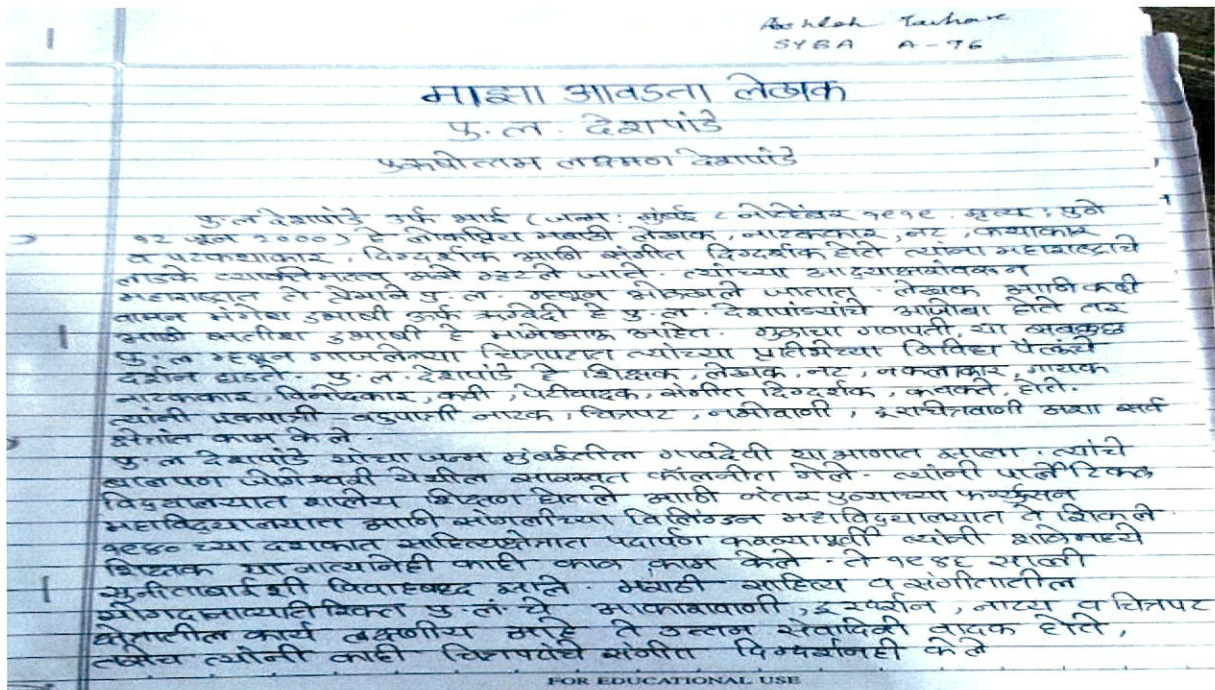 SYBA A-76
माझा आवडता लेखक
पु. ल. देशपांडे
पुरूषोत्तम लक्ष्मण देशपांडे
पु. ल देशपांडे उर्फ भाई (जन्म: मुंबई ८ नोव्हेंबर १९१९. मृत्यू: पुणे
१२ जून 2000) हे लोकप्रिय मराठी लेखक, नाटककार, नट, कथाकार
व पटकथाकार, दिग्दर्शक आणि संगीत दिग्दर्शक होते त्यांना महाराष्ट्राचे
लाडके व्यक्तिमत्त्व असे म्हटले जाते. त्यांच्या आद्याक्षरांवरून
महाराष्ट्रात ते प्रेमाने पु. ल. म्हणून ओळखले जातात. लेखक आणि कवी
वामन मंगेश दुभाषी उर्फ ऋग्वेदी हे पु. ल. देशपांड्यांचे आजोबा होते तर
आणि सतीश दुभाषी हे मामेभाऊ आहेत. गुळाचा गणपती, या सबकुछ
पु. ल म्हणून गाजलेल्या चित्रपटात त्यांच्या प्रतिभेच्या विविध पैलूंचे
दर्शन घडते. पु. ल. देशपांडे हे शिक्षक, लेखक, नट, नकलाकार, गायक
नाटककार, विनोदकार, कवी, पेटीवादक, संगीत दिग्दर्शक, वक्ते, होते.
त्यांनी एकपात्री बहुपात्री नाटक, चित्रपट, नभोवाणी, दूरचित्रवाणी अशा सर्व
क्षेत्रांत काम केले.
पु. ल देशपांडे यांचा जन्म मुंबईतील गावदेवी या भागात झाला. त्यांचे
बालपण जोगेश्वरी येथील सारस्वत कॉलनीत गेले. त्यांनी पार्ले टिळक
विद्यालयात शालेय शिक्षण घेतले आणि नंतर पुण्याच्या फर्ग्युसन
महाविद्यालयात आणि सांगलीच्या विलिंग्डन महाविद्यालयात ते शिकले.
१९४० च्या दशकात साहित्यक्षेत्रात पदार्पण करण्यापूर्वी त्यांनी शाळेमध्ये
शिक्षक या नात्यानेही काही काळ काम केले. ते १९४६ साली
सुनीताबाईशी विवाहबद्ध झाले. मराठी साहित्य व संगीतातील
योगदानाव्यतिरिक्त पु. ल. चे आकाशवाणी, दूरदर्शन, नाट्य व चित्रपट
क्षेत्रातील कार्य लक्षणीय आहे ते उत्तम वादक होते,
तसेच त्यांनी काही चित्रपटांचे संगीत दिग्दर्शनही केले
FOR EDUCATIONAL USE